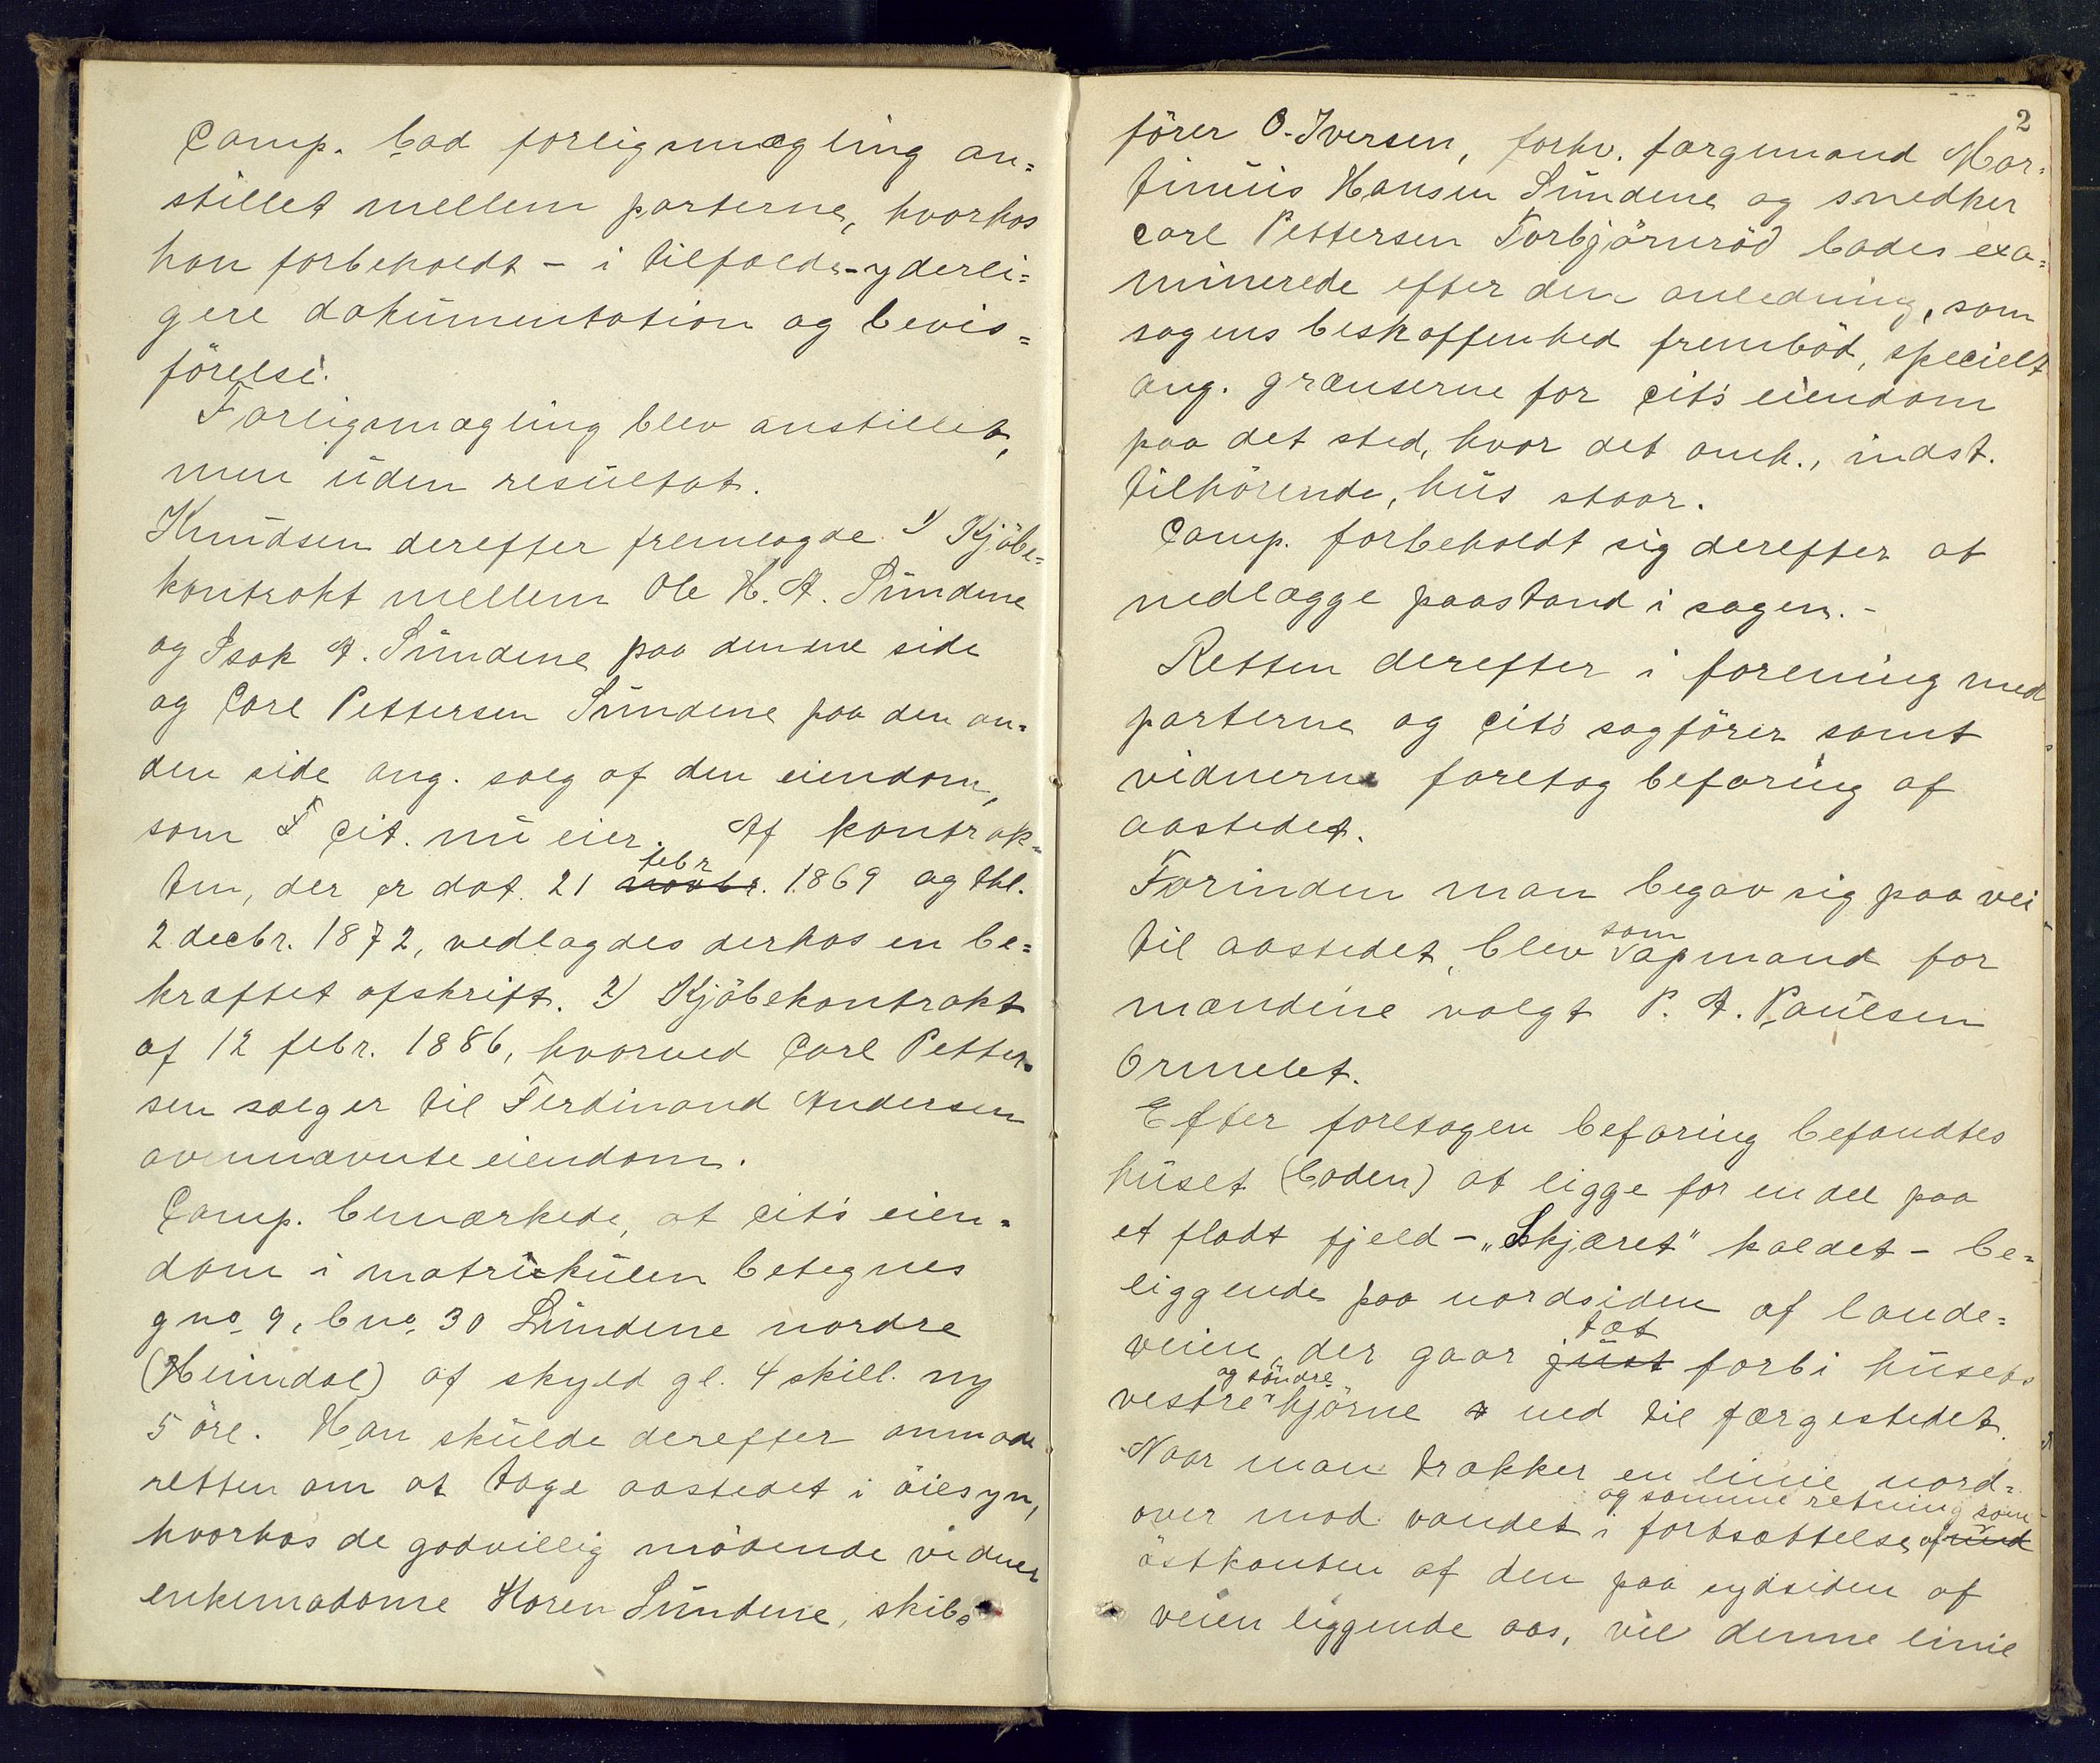 Comp. bad forligsmægling an=
stillet mellem parterne, hvorhos
han forbeholdt – i tilfælde – yderli=
gere dokumentation og bevis=
förelse.
Forligsmægling blev anstillet,
men uden resultat.
Knudsen derefter fremlagde 1) Kjöbe=
kontrakt mellem Ole H. A. Sundene
og Isak A. Sundene paa den ene side
og Carl Pettersen Sundene paa den an=
den side ang. salg af den eiendom,
som cit. nu eier. Af kontrak=
febr
ten, der er dat. 21 novbr. 1869 og thl.
2 decbr. 1872, vedlagdes derhos en be=
kræftet afskrift. 2) Kjöbekontrakt
af 12 febr. 1886, hvorved Carl Petter=
sen sælger til Ferdinand Andersen
ovennævnte eiendom.
Comp. bemærkede, at cit's eien=
dom i matrikulen betegnes
gno. 9, bno. 30 Sundene nordre
(Heimdal) af skyld gl. 4 skill. ny
5 öre. Han skulde derefter anmode
retten om at tage aastedet i öiesyn,
hvorhos de godvillig mödende vidner
enkemadame Karen Sundene, skibs
2
förer O. Iversen, forhv. færgemand Mar=
tinius Hansen Sundene og snedker
Carl Pettersen Torbjörnröd bades exa=
minerede efter den anledning, som
sagens beskaffenhed fremböd, specielt
ang. grænserne for cit's eiendom
paa det sted, hvor det omh., indst.
tilhörende, hus staar.
Comp. forbeholdt sig derefter at
nedlægge paastand i sagen. –
Retten derefter i forening med
parterne og cit's sagförer samt
vidnerne foretog befaring af
aastedet.
Forinden man begav sig paa vei
som
til aastedet, blev vapmand for
mændene valgt P. A. Paulsen
Ormelet.
Efter foretagen befaring befandtes
huset (boden) at ligge for en del paa
et fladt fjeld – „Skjæret" kaldet – be=
liggende paa nordsiden af lande=
tæt
veien, der gaar just forbi husets
og söndre
vestre hjörne ned til færgestedet.
Naar man trækker en linie nord=
og samme retning som
over mod vandet i fortsættelse af
östkanten af den paa sydsiden af
veien liggende aas, vil denne linie